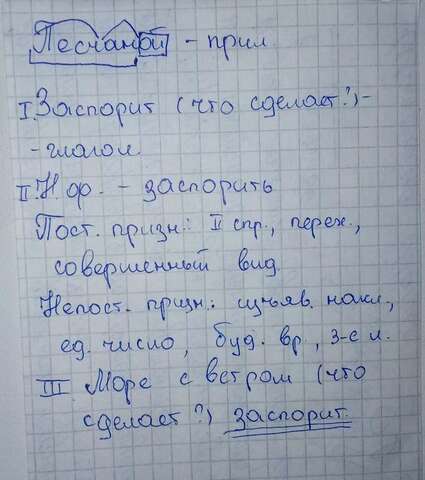 Песчаной - прил.
I. Заспорит (что сделает?) -
- глагол.
II. Н.ф. - заспорить
Пост. призн.: II спр., перех.,
совершенный вид.
Непост. призн.: изъяв. накл.,
ед. число, буд. вр., 3-е л.
III Море с ветром (что
сделает?) заспорит.